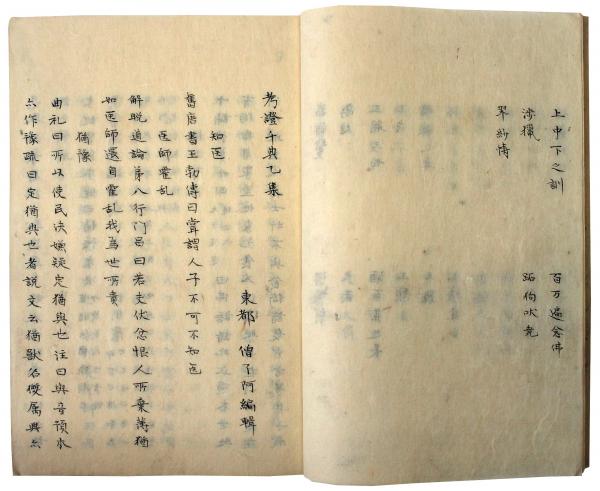 上中下之訓
百万遍念佛
涉獵
跖狗吠尭
考證千典乙集
東都 僧了阿編輯
知医
舊唐書王勃傳曰嘗謂人子不可不知医
医師霍乱
解脱道論第八行门品曰若支伏忿恨人所棄薄猶
如医師還自霍乱我為世所責
猶豫
曲礼曰所以使民决嫌疑定猶與也注曰與音預本
亦作豫疏曰定猶與也者說文云猶獸名玃属與亦